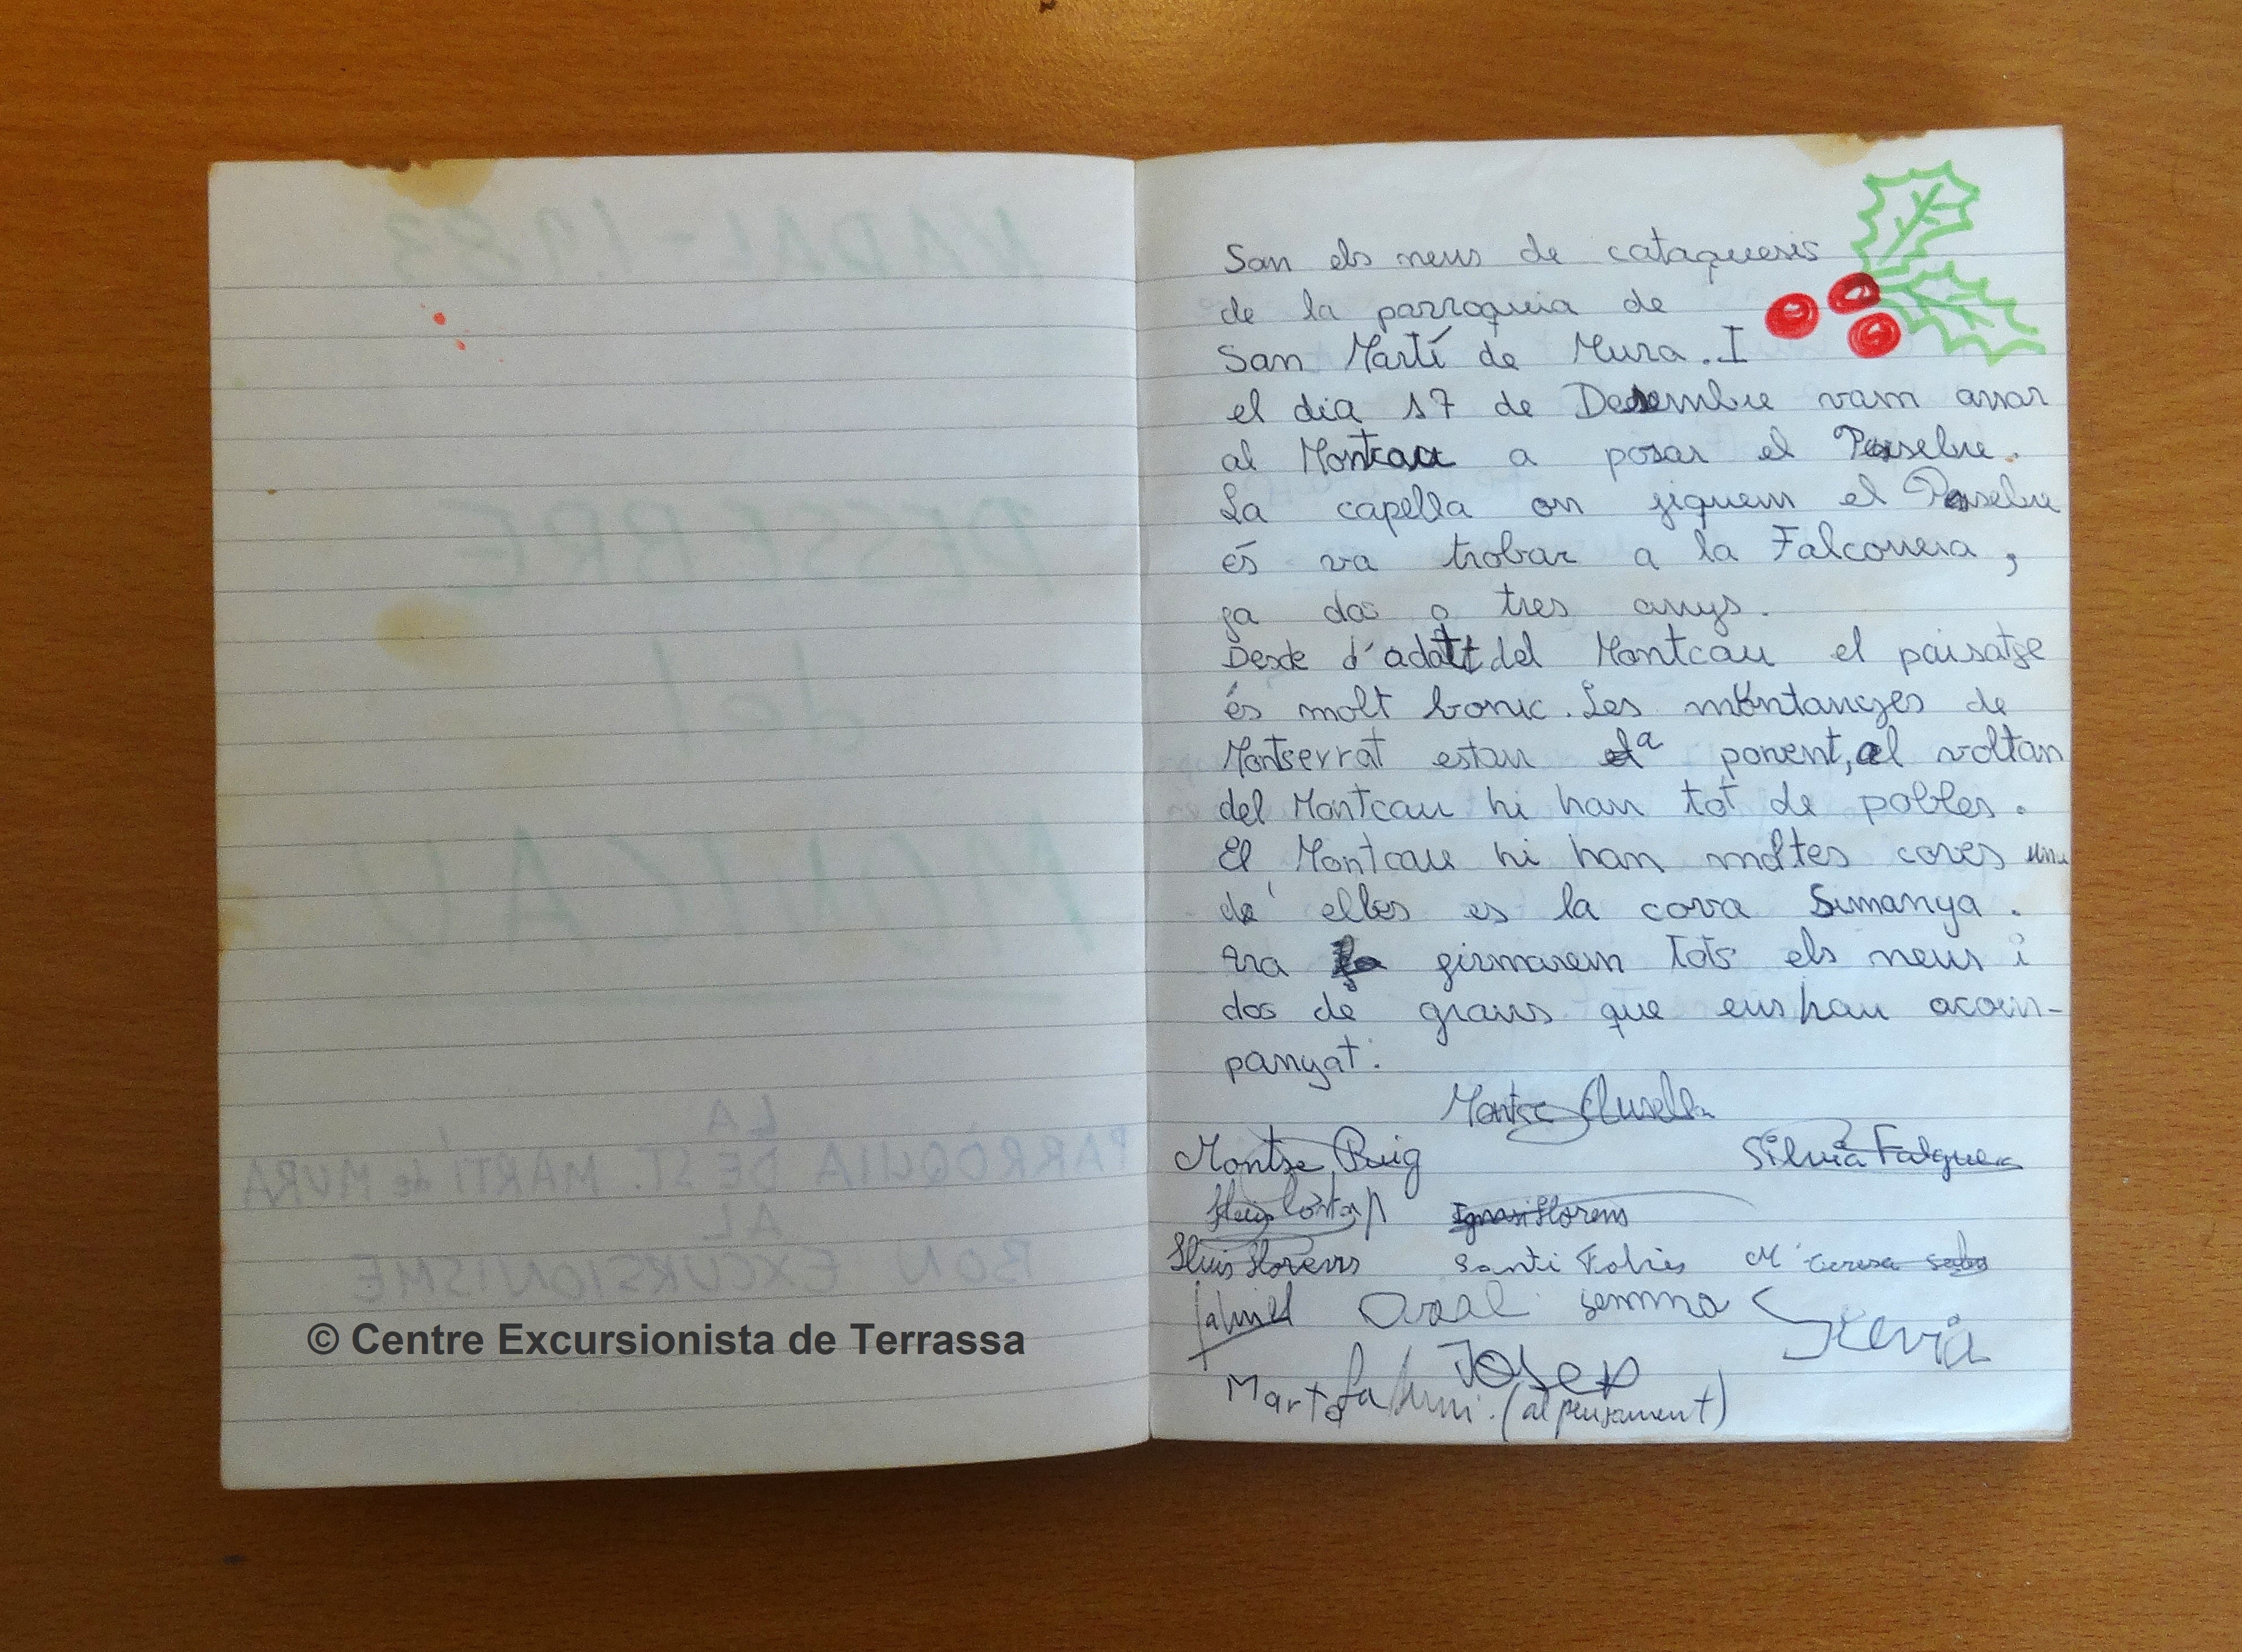 NADAL-1983
PESSEBRE
del
MONTCAU
LA
PARRÒQUIA DE ST. MARTÍ de MURA
AL
BON EXCURSIONISME
© Centre Excursionista de Terrassa
San els neus de cataquesis
de la parroquia de
San Martí de Mura. I
el dia 17 de Desembre vam anar
al Montcau a posar el Pesebre.
La capella on fiquem el Pesebre
és va trobar a la Falconera,
fa dos o tres anys.
Desde d'adalt del Montcau el paisatge
és molt bonic. Les montanyes de
Montserrat estan a ponent, al voltan
del Montcau hi han tot de pobles.
El Montcau hi han moltes coves una
de' elles es la cova Simanya.
Ara firmarem tots els neus i
dos de grans que ens han acom-
panyat.
Montse
Montse Puig Silvia Falguera
Lluis Ignasi Llorens
Lluis Llorens Santi Tobies Mª Teresa
Gabriel Oval Gemma Silvia
Josep
Marta (al pensament)